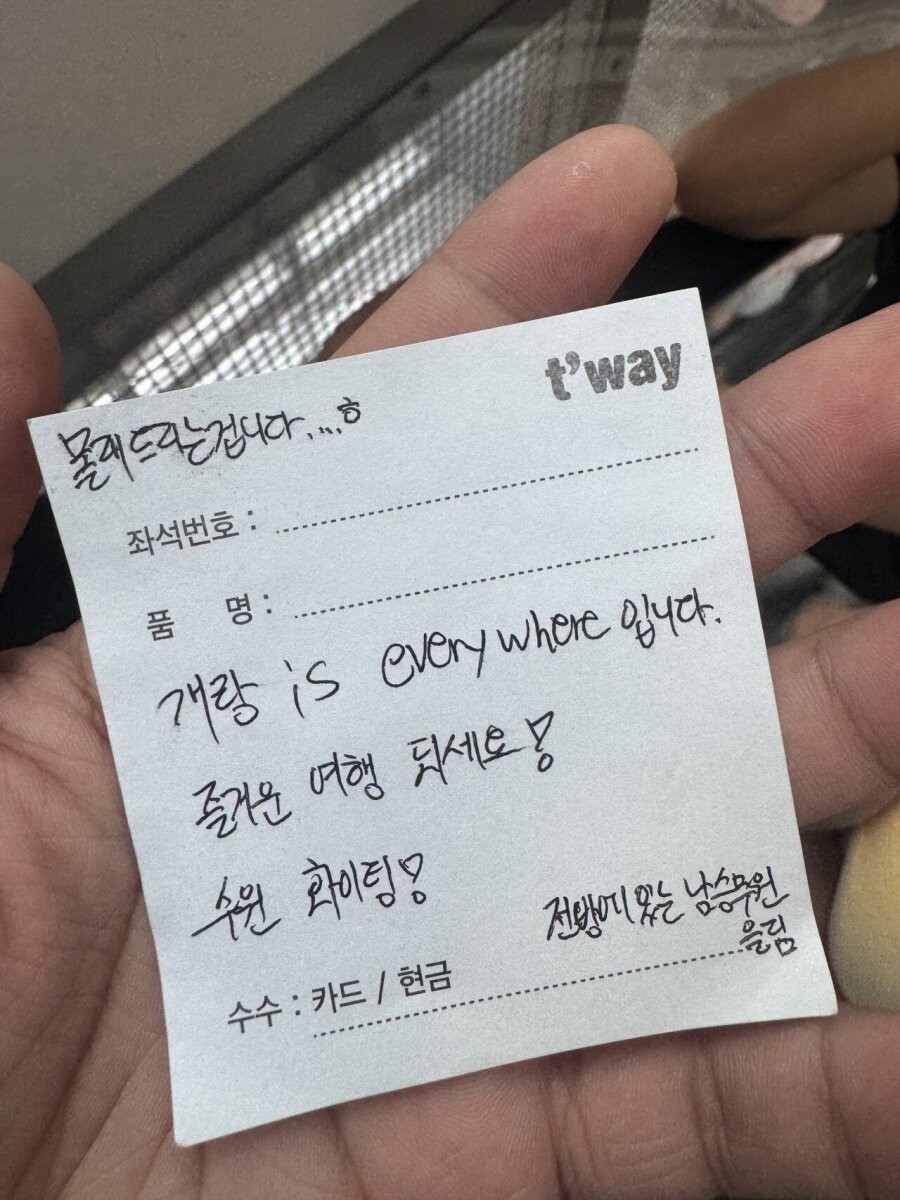 t'way
몰래 드리는겁니다....ㅎ
좌석번호 :
품 명 :
개랑 is everywhere 입니다.
즐거운 여행 되세요!
수원 화이팅!
전방에 있는 남승무원
올림
수수 : 카드 / 현금